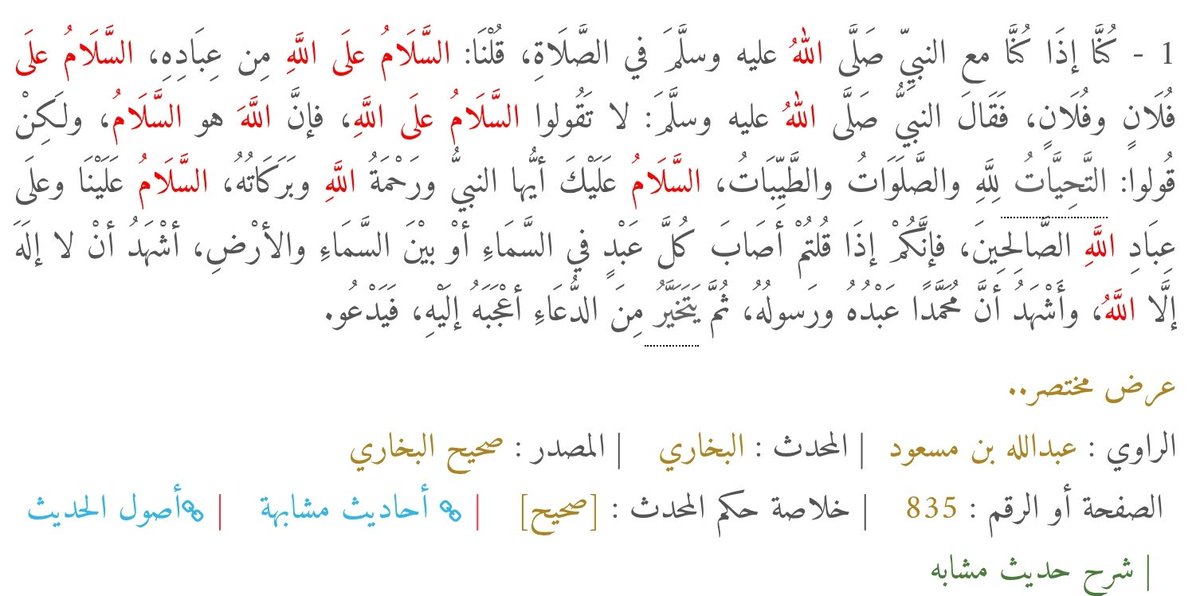 1 - كُنَّا إذَا كُنَّا مع النبيِّ صَلَّى اللهُ عليه وسلَّمَ في الصَّلَاةِ، قُلْنَا: السَّلَامُ علَى اللَّهِ مِن عِبَادِهِ، السَّلَامُ علَى
فُلَانٍ وفُلَانٍ، فَقَالَ النبيُّ صَلَّى اللهُ عليه وسلَّمَ: لا تَقُولوا السَّلَامُ علَى اللَّهِ، فإنَّ اللَّهَ هو السَّلَامُ، ولَكِنْ
قُولوا: التَّحِيَّاتُ لِلَّهِ والصَّلَوَاتُ والطَّيِّبَاتُ، السَّلَامُ عَلَيْكَ أيُّها النبيُّ ورَحْمَةُ اللَّهِ وبَرَكَاتُهُ، السَّلَامُ عَلَيْنَا وعلَى
عِبَادِ اللَّهِ الصَّالِحِينَ، فإنَّكُمْ إذَا قُلتُمْ أصَابَ كُلَّ عَبْدٍ في السَّمَاءِ أوْ بيْنَ السَّمَاءِ والأرْضِ، أشْهَدُ أنْ لا إلَهَ
إلَّا اللَّهُ، وأَشْهَدُ أنَّ مُحَمَّدًا عَبْدُهُ ورَسولُهُ، ثُمَّ يَتَخَيَّرُ مِنَ الدُّعَاءِ أعْجَبَهُ إلَيْهِ، فَيَدْعُو.
عرض مختصر..
الراوي : عبدالله بن مسعود | المحدث : البخاري | المصدر : صحيح البخاري
الصفحة أو الرقم : 835 | خلاصة حكم المحدث : [صحيح] | أحاديث مشابهة | أصول الحديث
| شرح حديث مشابه